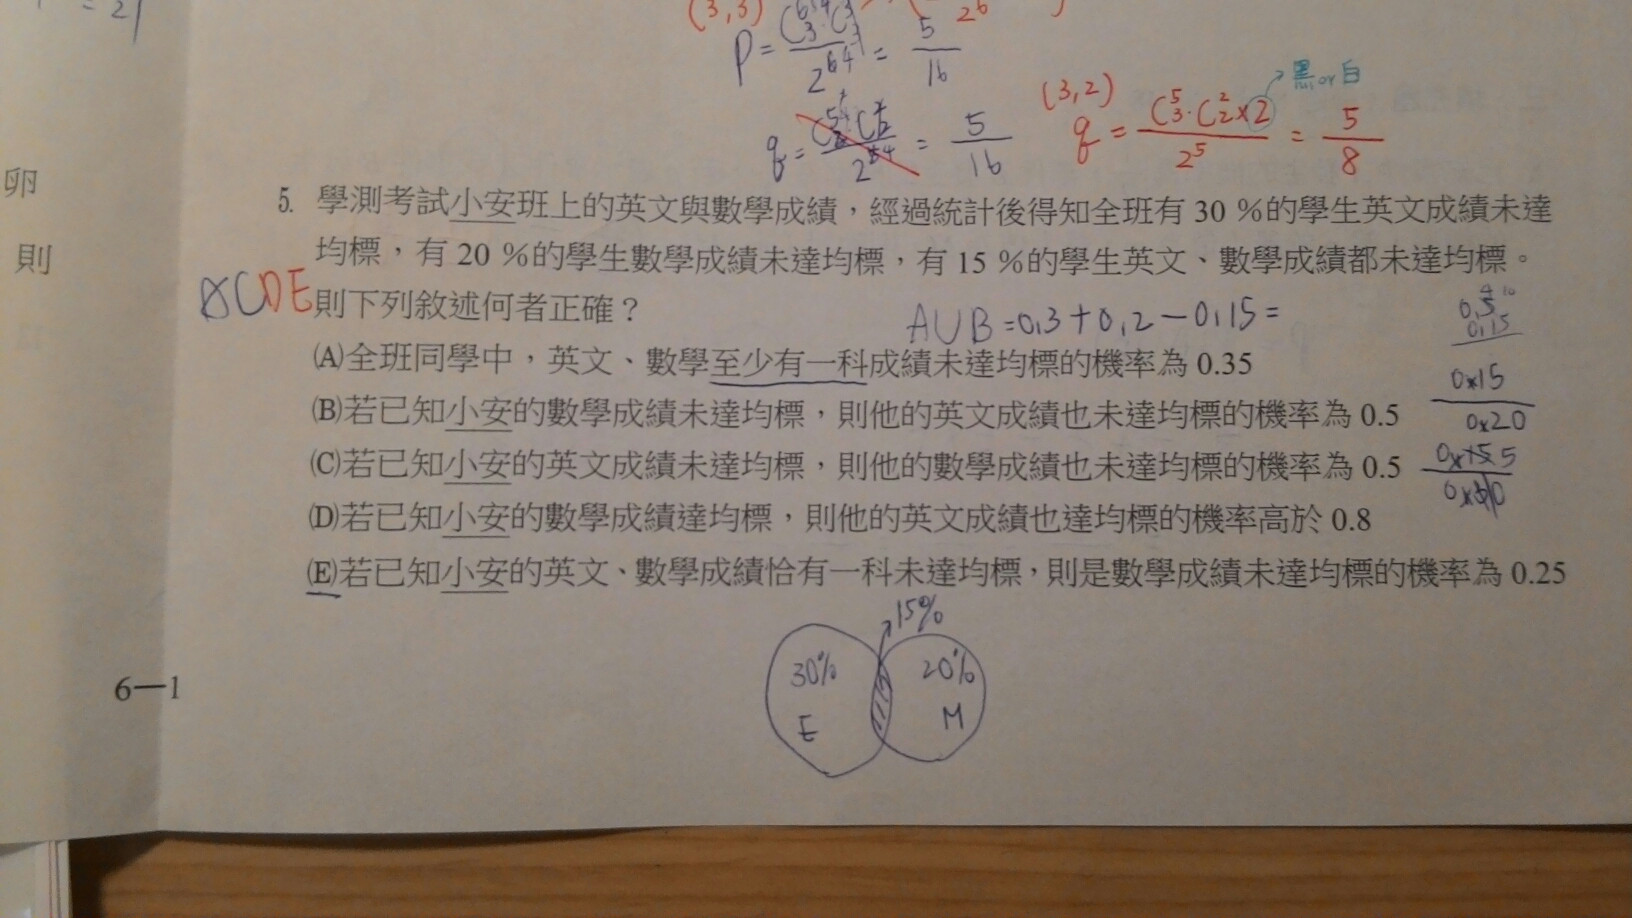 = 21
(3,3)
P = = 5/16
2^6
黑 or 白
(3,2)
q = = 5/16
q = C^5_3·C^2_2×2 / 2^5 = 5/8
卵
則
5. 學測考試小安班上的英文與數學成績,經過統計後得知全班有 30 %的學生英文成績未達
均標,有 20 %的學生數學成績未達均標,有 15 %的學生英文、數學成績都未達均標。
CDE則下列敘述何者正確?
AUB=0.3+0.2-0.15=
0.15
(A)全班同學中,英文、數學至少有一科成績未達均標的機率為 0.35
(B)若已知小安的數學成績未達均標,則他的英文成績也未達均標的機率為 0.5
0.15
0.20
(C)若已知小安的英文成績未達均標,則他的數學成績也未達均標的機率為 0.5
(D)若已知小安的數學成績達均標,則他的英文成績也達均標的機率高於 0.8
(E)若已知小安的英文、數學成績恰有一科未達均標,則是數學成績未達均標的機率為 0.25
15%
30% 20%
E M
6—1